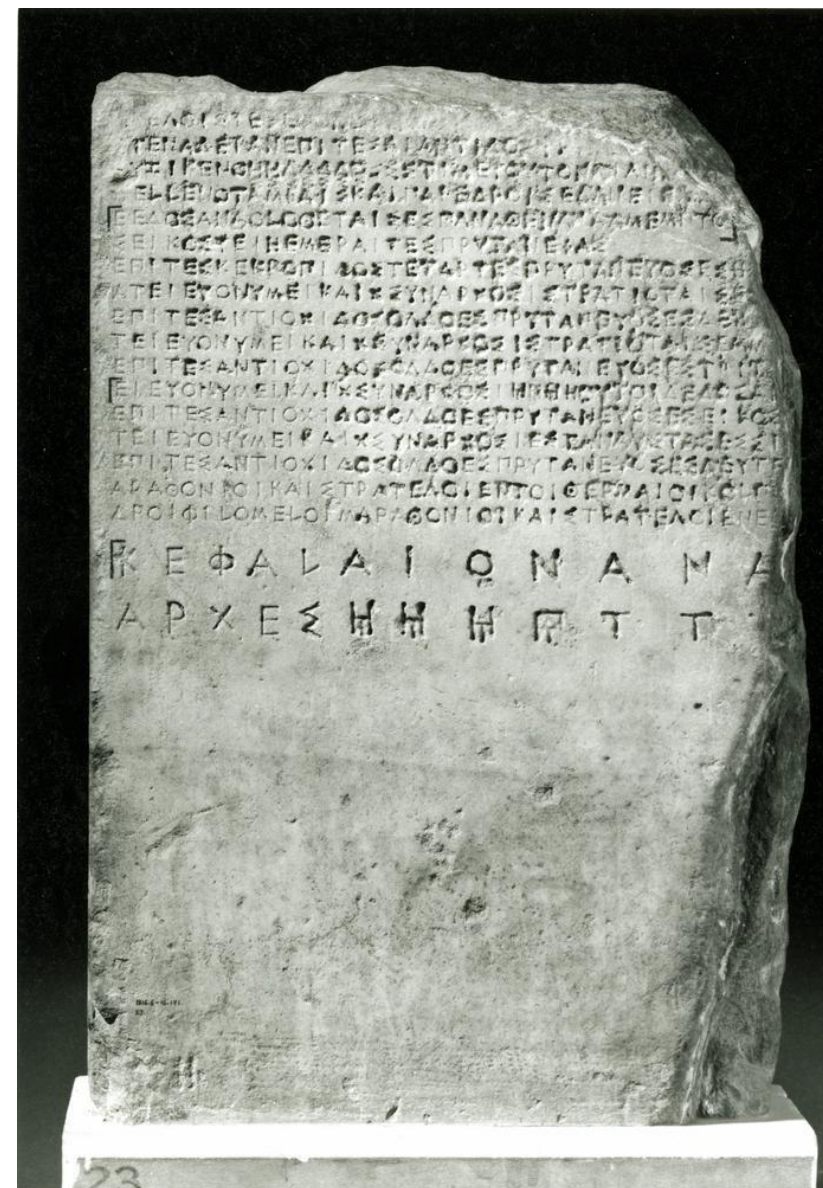 ΤΕΝΑΔΕΙΑΝΕΠΙΤΕΣΑΙΑΝΤΙΔΟ
ΕΛΛΕΝΟΤΑΜΙΑΙΣΚΑΙΠΑΡΕΔΡΟΙΣΕΔΑΝΕΙ
ΕΔΟΣΑΝΑΘΛΟΘΕΤΑΙΣΕΣΠΑΝΑΘΕΝΑΙΑΑΜΕΜΠΤΟ
ΣΕΙΚΟΣΤΕΙΗΕΜΕΡΑΙΤΕΣΠΡΥΤΑΝΕΙΑΣ
ΕΠΙΤΕΣΚΕΚΡΟΠΙΔΟΣΤΕΤΑΡΤΕΣΠΡΥΤΑΝΕΥΟΣΕΣΗ
ΑΤΕΙΕΥΟΝΥΜΕΙΚΑΙΧΣΥΝΑΡΧΟΣΙΣΤΡΑΤΙΟΤΑΙΣΕ
ΕΠΙΤΕΣΑΝΤΙΟΧΙΔΟΣΟΓΔΟΕΣΠΡΥΤΑΝΕΥΟΣΕΣΔΕΚ
ΤΕΙΕΥΟΝΥΜΕΙΚΑΙΧΣΥΝΑΡΧΟΣΙΣΤΡΑΤΙΟΤΑΙΣΕΜ
ΕΠΙΤΕΣΑΝΤΙΟΧΙΔΟΣΟΓΔΟΕΣΠΡΥΤΑΝΕΥΟΣΕΣΤΡΙΤ
ΕΙΕΥΟΝΥΜΕΙΚΑΙΧΣΥΝΑΡΧΟΣΙΗΟΥΤΟΙΔΕΔΟΣΑ
ΕΠΙΤΕΣΑΝΤΙΟΧΙΔΟΣΟΓΔΟΕΣΠΡΥΤΑΝΕΥΟΣΕΣΕΙΚΟΣ
ΤΕΙΕΥΟΝΥΜΕΙΚΑΙΧΣΥΝΑΡΧΟΣΙΕΣΤΑΣΝΑΥΣΤΑΣΕΣΣ
ΕΠΙΤΕΣΑΝΤΙΟΧΙΔΟΣΟΓΔΟΕΣΠΡΥΤΑΝΕΥΟΣΕΣΔΕΥΤΕ
ΑΡΑΘΟΝΙΟΙΚΑΙΣΤΡΑΤΕΓΟΙΕΝΤΟΙΘΕΡΜΑΙΟΙΚΟΛΠ
ΔΡΟΙΦΙΛΟΜΕΛΟΙΜΑΡΑΘΟΝΙΟΙΚΑΙΣΤΡΑΤΕΓΟΙΕΝΕ
ΚΕΦΑΛΑΙΟΝΑΝΑ
ΑΡΧΕΣΗΗΗ𐅄ΤΤ
23